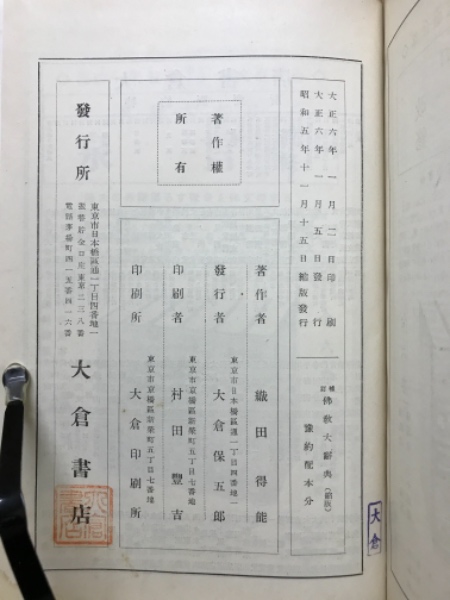 大正六年一月二日印刷
大正六年一月五日發行
昭和五年十一月十五日縮版發行
補訂 佛敎大辭典(縮版)
豫約配本分
著作權
所有
著作者 織田得能
東京市日本橋區通一丁目四番地
發行者 大倉保五郎
東京市京橋區新榮町五丁目七番地
印刷者 村田豐吉
東京市京橋區新榮町五丁目七番地
印刷所 大倉印刷所
發行所
東京市日本橋區通一丁目四番地
振替貯金口座東京二三八番
大倉書店
大倉